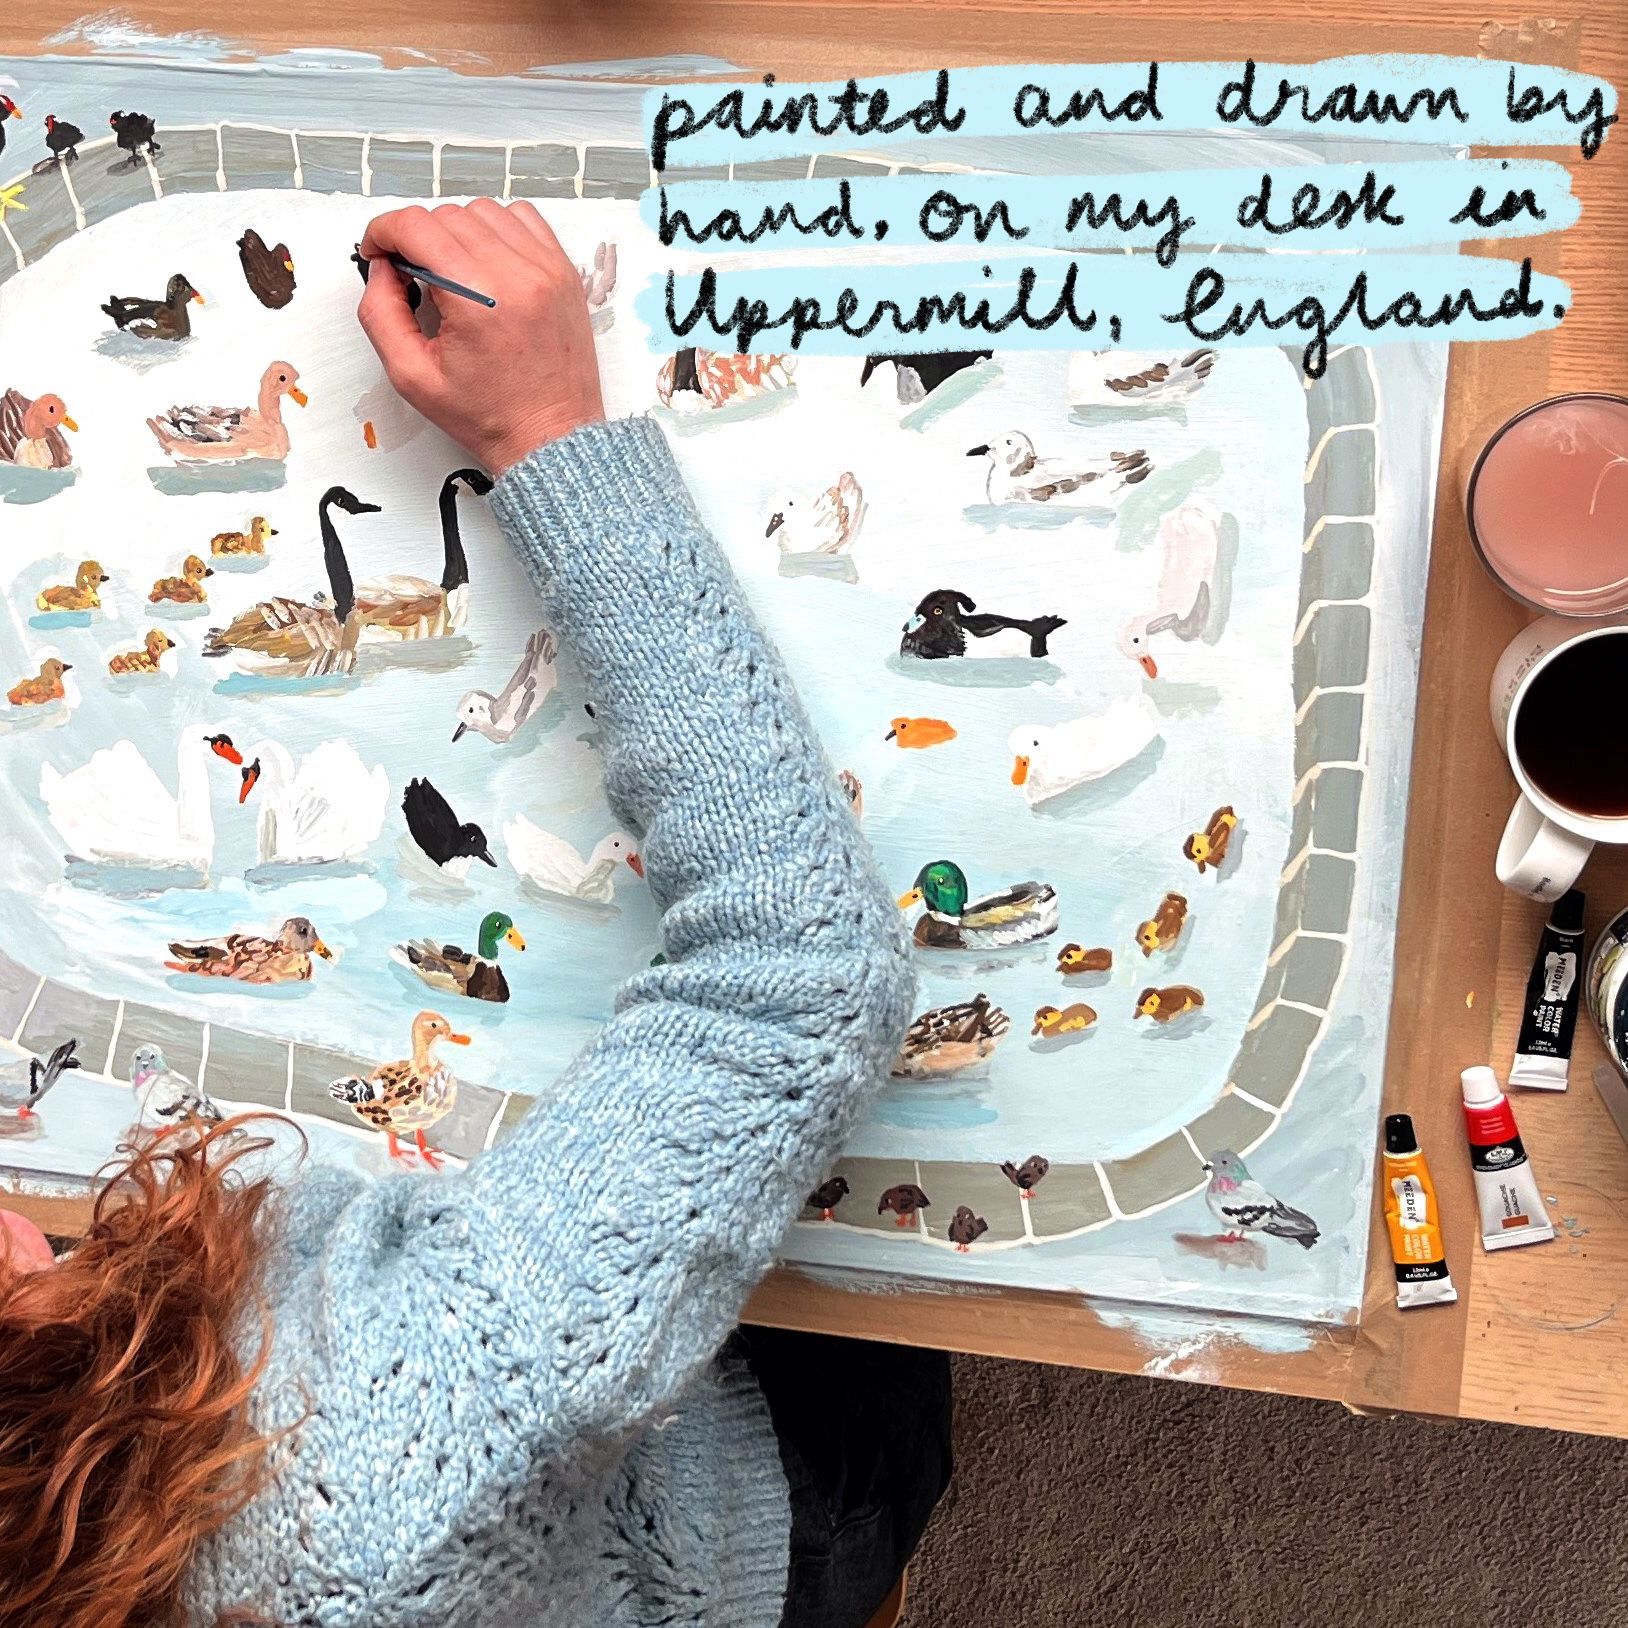 painted and drawn by
hand, on my desk in
Uppermill, England.
Black
MEEDEN
WATER
COLOR
PAINT
MEEDEN
WATER
COLOR
PAINT
GOUACHE